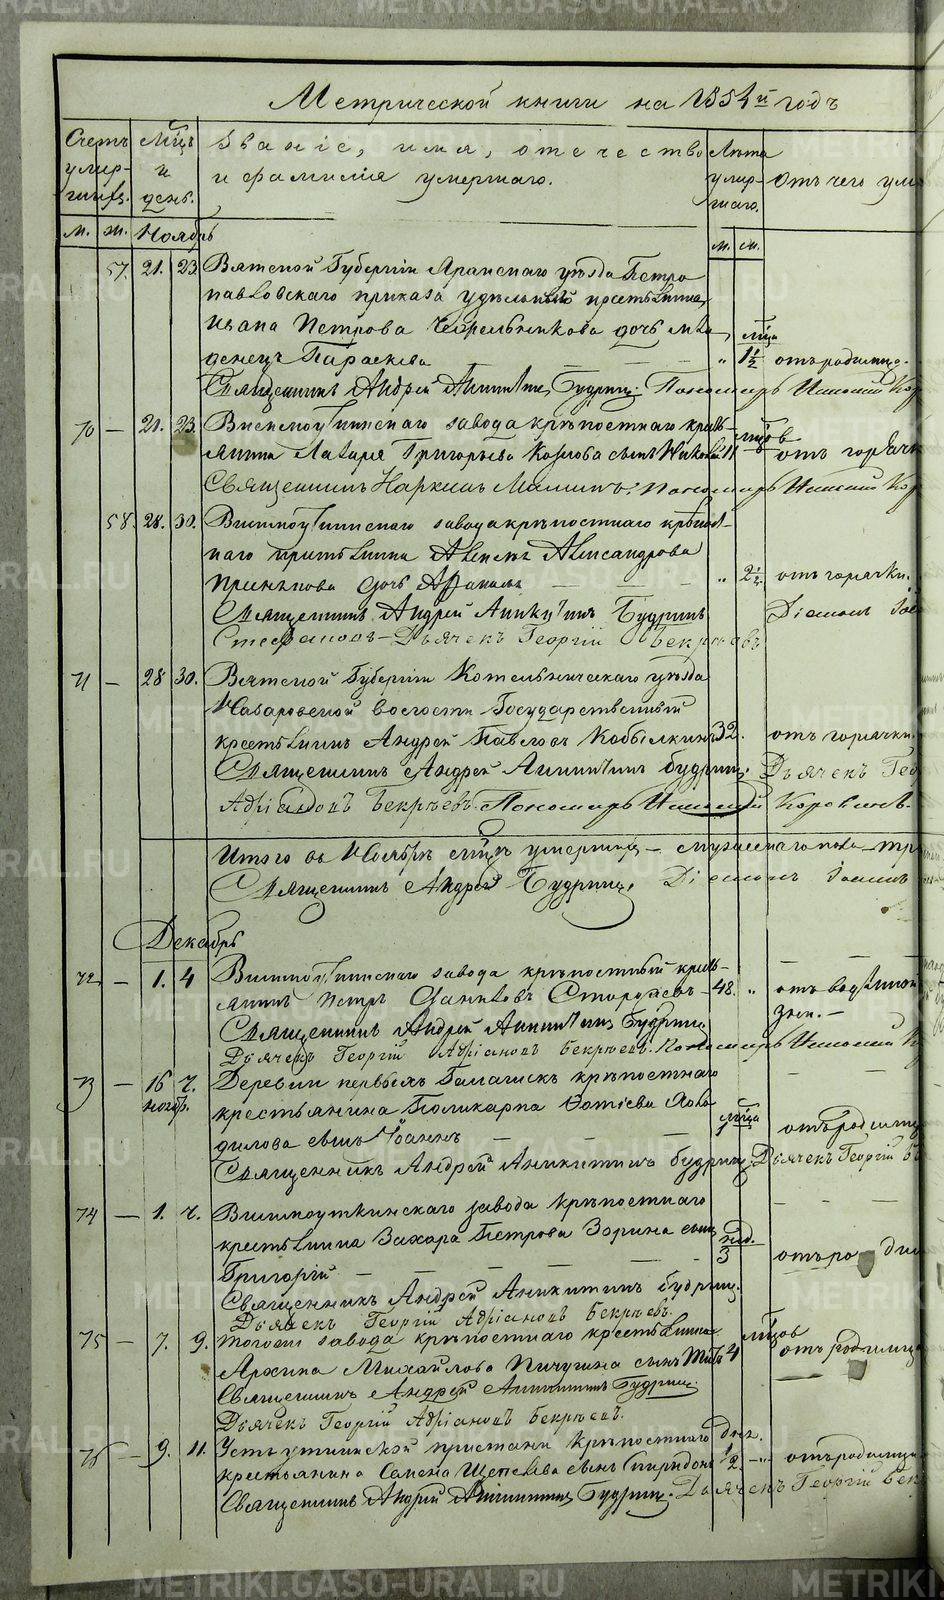 METRIKI.GASO-URAL.RU
Метрической книги на 1854й годъ
Счетъ умер-шихъ. Мѣць и день. Званіе, имя, отечество и фамилія умершаго. Лѣта умер-шаго. Отъ чего уме
м. ж. Ноябрь м. ж.
57. 21. 23 Вятской Губерніи Яранскаго уѣзда Петро
павловскаго приказа удѣльнаго крестьянина
Ивана Петрова дочь мла
денецъ Параскева " мѣца 1½ отъ родимца.
Священникъ Андрей Аникитинъ Будринъ. Пономарь Кор
70 — 21. 23. Висимоуткинскаго завода крѣпостнаго кресть-
янина Лазаря Григорьева Козлова сынъ Николай 11 мѣцовъ отъ горячк
Священникъ Наркисъ Маминъ. Пономарь Кор
58. 28. 30. Висимоуткинскаго завода крѣпостнаго
Александрова
дочь " 2½ отъ горячки.
Священникъ Андрей Аникитинъ Будринъ Діаконъ Іоа
Стефановъ – Дьячекъ Георгій Бекрѣевъ
71 — 28 30. Вятской Губерніи Котельническаго уѣзда
волости Государственный
крестьянинъ Андрей Павловъ Кобылкинъ 32. отъ горячки.
Священникъ Андрей Аникитинъ Будринъ. Дьячекъ Гео
Адріановъ Бекрѣевъ. Пономарь Коровинъ.
Итого въ Ноябрѣ мѣцѣ умершихъ – мужескаго пола – тр
Священникъ Андрей Будринъ. Діаконъ Іоаннъ
Декабрь
72 — 1. 4 Висимоуткинскаго завода крѣпостный кресть-
янинъ Петръ Даниловъ Сторожевъ – 48. " отъ водяной
Священникъ Андрей Аникитинъ Будринъ
Дьячекъ Георгій Адріановъ Бекрѣевъ. Пономарь К
73 — 16 ноябр. 4. Деревни первыхъ Галашекъ крѣпостнаго
крестьянина Поликарпа Фотіева
сынъ Іоаннъ — — 1 мѣца отъ родимца
Священникъ Андрей Аникитинъ Будринъ. Дьячекъ Георгій Бе
74 — 1. 4. Висимоуткинскаго завода крѣпостнаго
крестьянина Захара Петрова Зорина сынъ
Григорій — — — — нед. 3 отъ родим
Священникъ Андрей Аникитинъ Будринъ.
Дьячекъ Георгій Адріановъ Бекрѣевъ.
75 — 7. 9. Тогоже завода крѣпостнаго крестьянина
Архипа Михайлова Пичугина сынъ Титъ 4 мѣцовъ отъ родимца
Священникъ Андрей Аникитинъ Будринъ.
Дьячекъ Георгій Адріановъ Бекрѣевъ.
76 — 9. 11. Усть уткинской пристани крѣпостнаго
крестьянина Семена сынъ Спиридонъ дня. ½ –"– отъ родимца
Священникъ Андрей Аникитинъ Будринъ. Дьячекъ Георгій Бек
METRIKI.GASO-URAL.RU